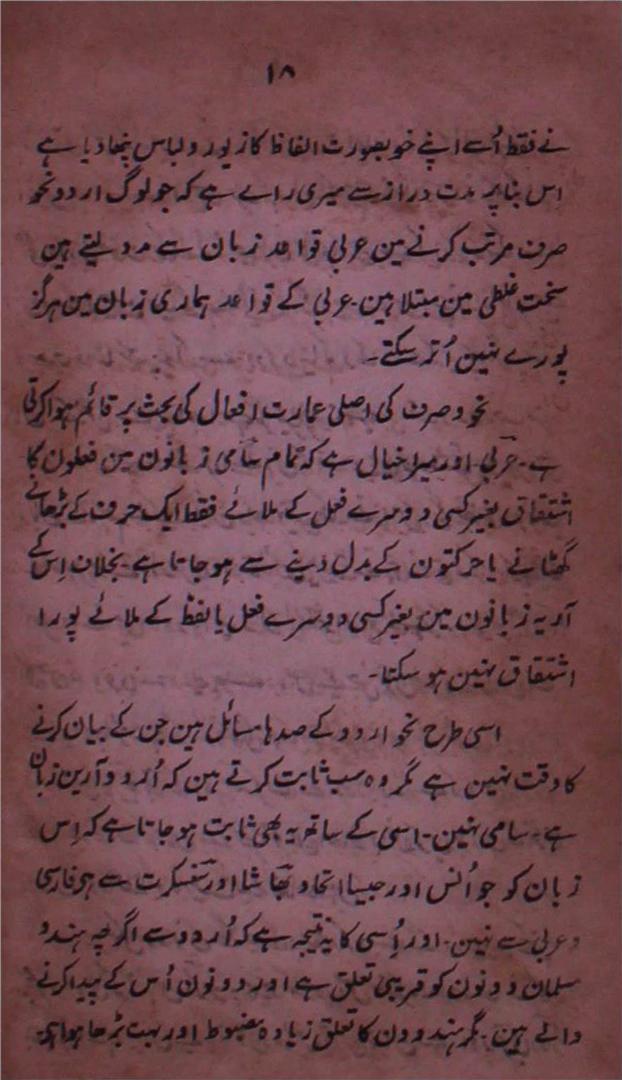 ۱۸
نے فقط اُسے اپنے خوبصورت الفاظ کا زیور و لباس پنھا دیا ہے
اس بنا پر مدت دراز سے میری راے ہے کہ جو لوگ اردو نحو
صرف مرتب کرنے مین عربی قواعد زبان سے مدد لیتے ہین
سخت غلطی مین مبتلا ہین۔ عربی کے قواعد ہماری زبان مین ہرگز
پورے نہین اُتر سکتے۔
نحو و صرف کی اصلی عمارت افعال کی بحث پر قائم ہوا کرتی
ہے۔ عربی اور میرا خیال ہے کہ تمام سامی زبانون مین فعلون کا
اشتقاق بغیر کسی دوسرے فعل کے ملائے فقط ایک حرف کے بڑھانے
گھٹانے یا حرکتون کے بدل دینے سے ہو جاتا ہے۔ بخلاف اِس کے
آریہ زبانون مین بغیر کسی دوسرے فعل یا لفظ کے ملائے پورا
اشتقاق نہین ہو سکتا۔
اسی طرح نحو اردو کے صدہا مسائل ہین جن کے بیان کرنے
کا وقت نہین ہے مگر وہ سب ثابت کرتے ہین کہ اُردو آرین زبان
ہے۔ سامی نہین۔ اسی کے ساتھ یہ بھی ثابت ہو جاتا ہے کہ اِس
زبان کو جو اُنس اور جیسا اتحاد بھاشا اور سنسکرت سے ہی فارسی
و عربی سے نہین۔ اور اِسی کا یہ نتیجہ ہے کہ اُردو سے اگرچہ ہندو
مسلمان دونون کو قریبی تعلق ہے اور دونون اُس کے پیدا کرنے
والے ہین۔ مگر ہندوون کا تعلق زیادہ مضبوط اور بہت بڑھا ہوا ہی